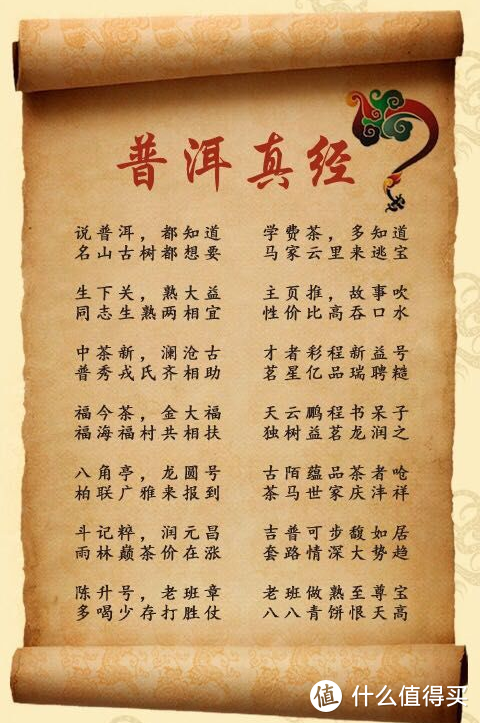 普洱真经
说普洱，都知道
名山古树都想要
生下关，熟大益
同志生熟两相宜
中茶新，澜沧古
普秀戎氏齐相助
福今茶，金大福
福海福村共相扶
八角亭，龙圆号
柏联广雅来报到
斗记粹，润元昌
雨林巅茶价在涨
陈升号，老班章
多喝少存打胜仗
学费茶，多知道
马家云里来逃宝
主页推，故事吹
性价比高吞口水
才者彩程新益号
茗星亿品瑞聘糙
天云鹏程书呆子
独树益茗龙润之
古陌蕴品茶者呛
茶马世家庆沣祥
吉普可步馥如居
套路情深大势趋
老班做熟至尊宝
八八青饼恨天高
值 什么值得买